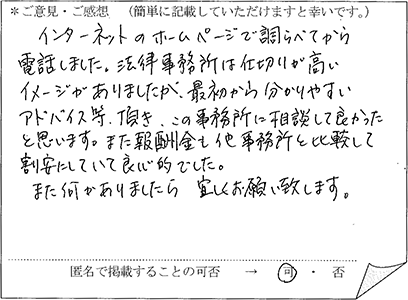 ＊ご意見・ご感想　（簡単に記載していただけますと幸いです。）
インターネットのホームページで調らべてから
電話しました。法律事務所は仕切りが高い
イメージがありましたが、最初から分かりやすい
アドバイス等、頂き、この事務所に相談して良かった
と思います。また報酬金も他事務所と比較して
割安にしていて良心的でした。
また何かありましたら 宜しくお願い致します。
匿名で掲載することの可否　→　可　・　否